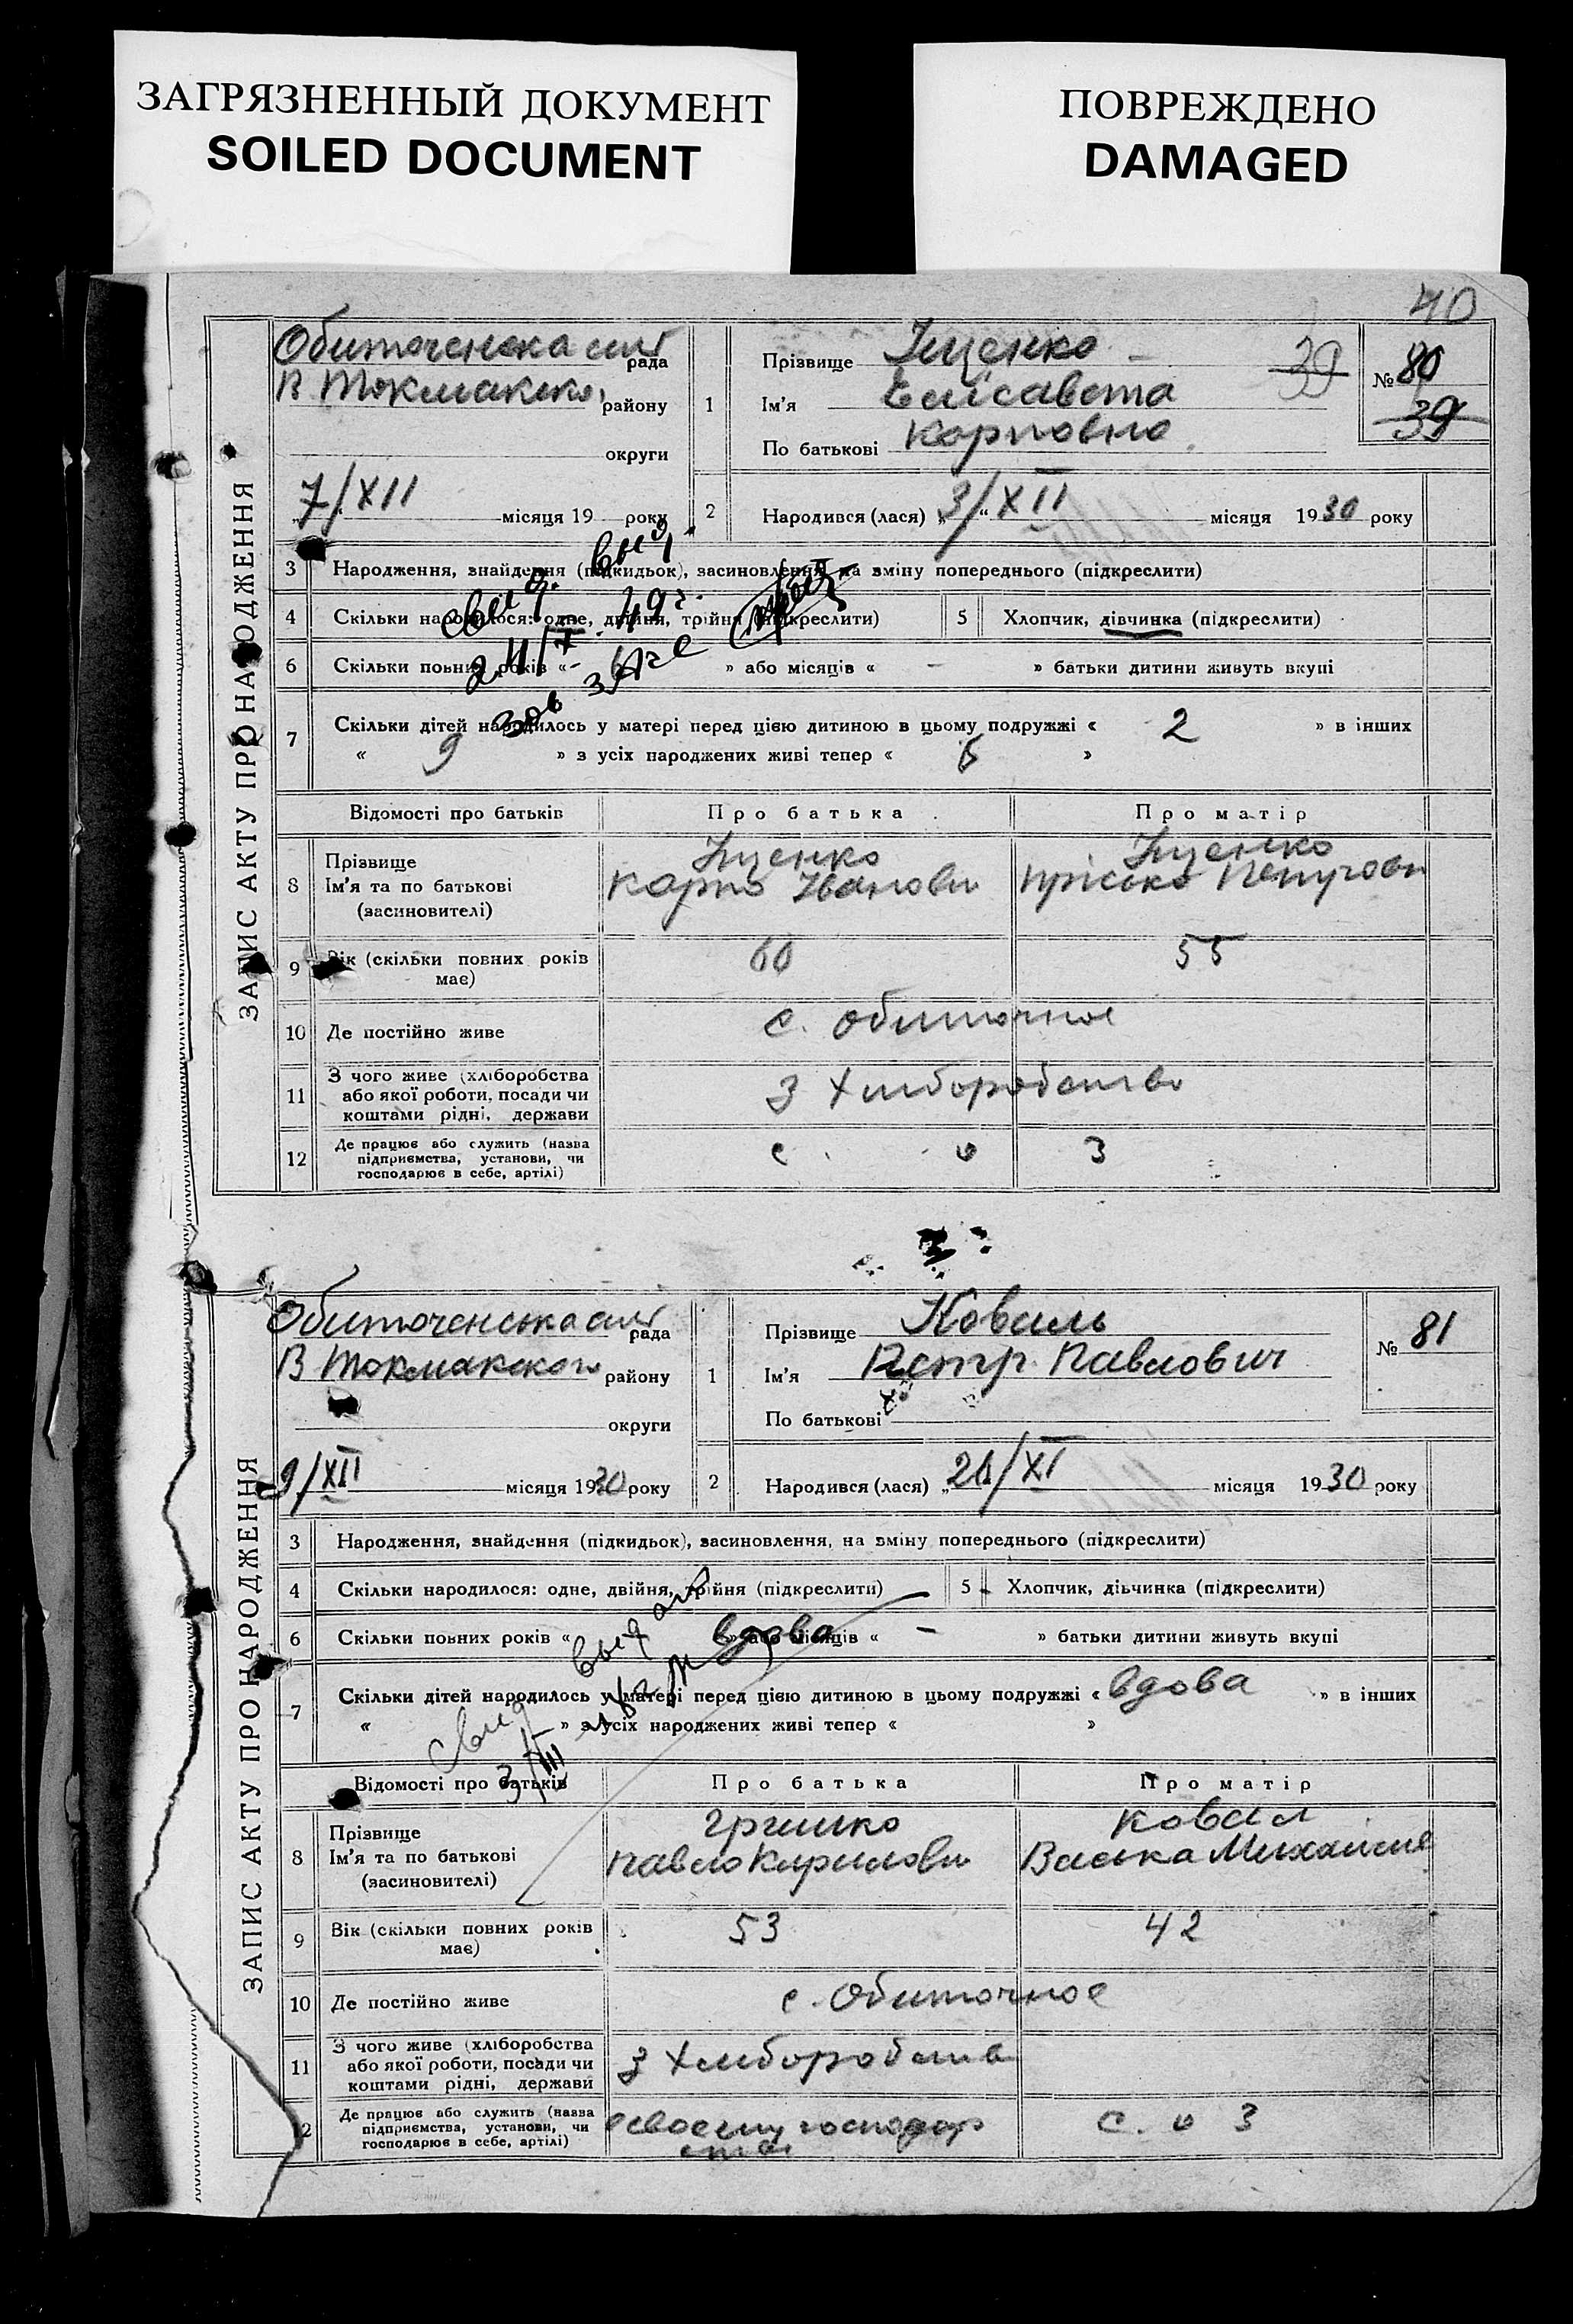 ЗАГРЯЗНЕННЫЙ ДОКУМЕНТ
SOILED DOCUMENT
ПОВРЕЖДЕНО
DAMAGED
40
ЗАПИС АКТУ ПРО НАРОДЖЕННЯ
Обиточенська сіл рада
В Токмакско, району
округи
7/XII місяця 19 року
1 Прізвище Іщенко 39
Ім'я Елісавета
По батькові Карповна
№ 80
39
2 Народився (лася) „3/“ XII місяця 1930 року
3 Народження, знайдення (підкидьок), засиновлення, на зміну попереднього (підкреслити)
4 Скільки народилося: одне, двійня, трійня (підкреслити) 5 Хлопчик, дівчинка (підкреслити)
6 Скільки повних років «-» або місяців « - » батьки дитини живуть вкупі
7 Скільки дітей народилось у матері перед цією дитиною в цьому подружжі « 2 » в інших
« 9 » з усіх народжених живі тепер « 5 »
Відомості про батьків Про батька Про матір
8 Прізвище Іщенко Іщенко
Ім'я та по батькові Карпо Іванови Пріська
(засиновителі)
9 Вік (скільки повних років має) 60 55
10 Де постійно живе с. Обиточное
11 З чого живе (хліборобства або якої роботи, посади чи коштами рідні, держави З Хліборобства
12 Де працює або служить (назва підприємства, установи, чи господарює в себе, артілі) с. о з
ЗАПИС АКТУ ПРО НАРОДЖЕННЯ
Обиточенська сіл рада
В Токмакского району
округи
9/XII місяця 1930 року
1 Прізвище Коваль
Ім'я Петр Павлович
По батькові
№ 81
2 Народився (лася) „21/XI місяця 1930 року
3 Народження, знайдення (підкидьок), засиновлення, на зміну попереднього (підкреслити)
4 Скільки народилося: одне, двійня, трійня (підкреслити) 5 Хлопчик, дівчинка (підкреслити)
6 Скільки повних років « вдова » або місяців « - » батьки дитини живуть вкупі
7 Скільки дітей народилось у матері перед цією дитиною в цьому подружжі « вдова » в інших
« » з усіх народжених живі тепер « »
Відомості про батьків Про батька Про матір
8 Прізвище Гришко Ковал
Ім'я та по батькові Павло Кирилови Васька
(засиновителі)
9 Вік (скільки повних років має) 53 42
10 Де постійно живе с. Обиточное
11 З чого живе (хліборобства або якої роботи, посади чи коштами рідні, держави З Хліборобства
12 Де працює або служить (назва підприємства, установи, чи господарює в себе, артілі) своему господар с. о з